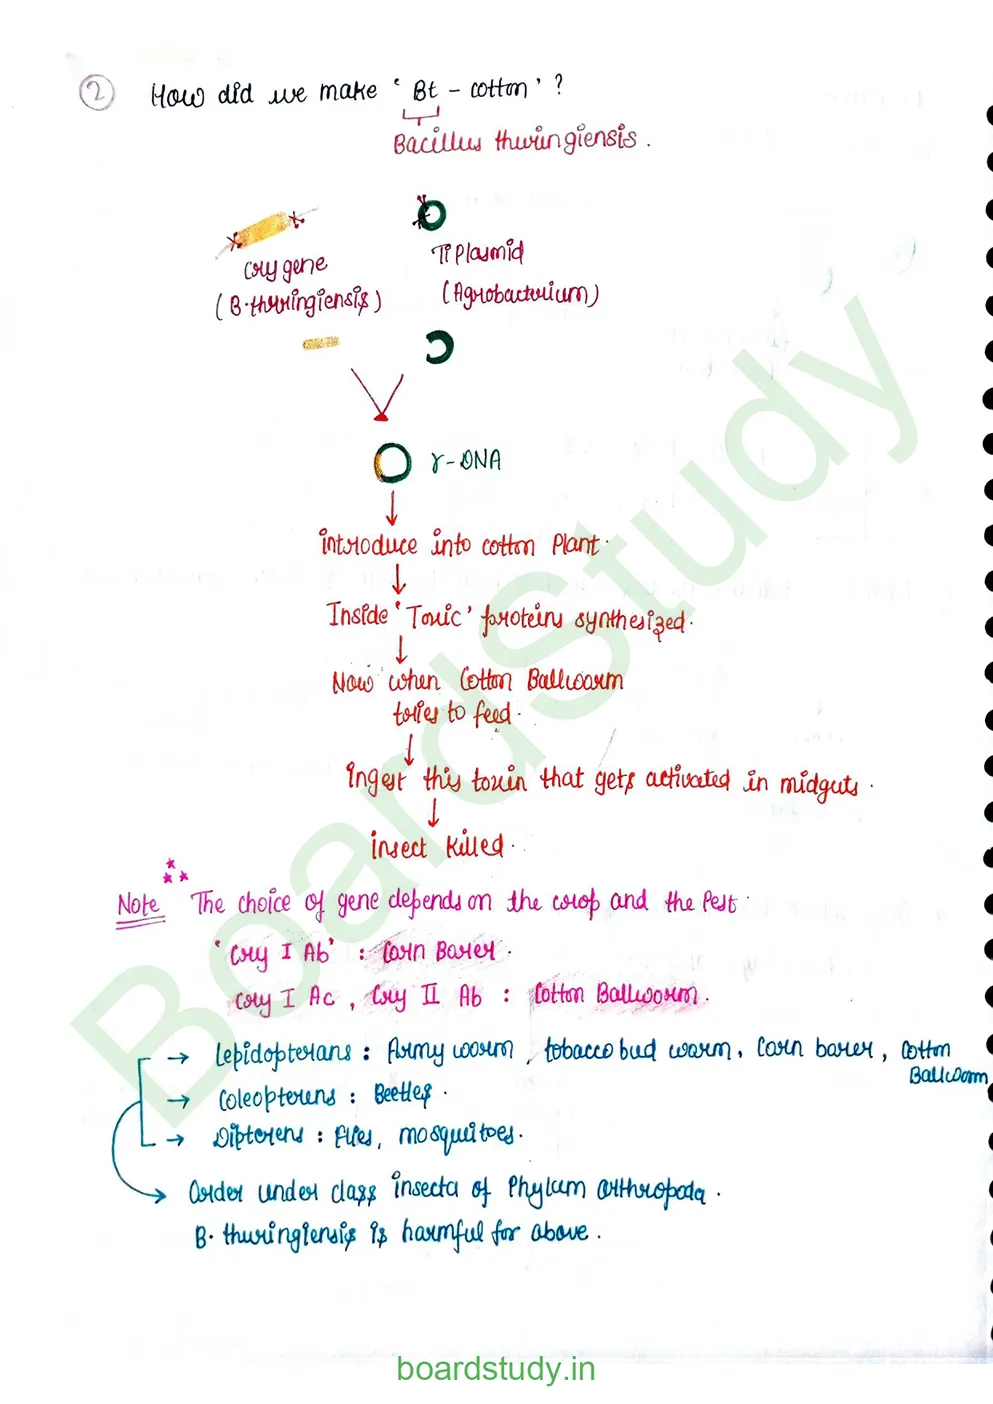 2 How did we make ' Bt - cotton ' ?
Bacillus thuringiensis .
cry gene
( B. thuringiensis )
Ti Plasmid
( Agrobacterium )
r - DNA
introduce into cotton Plant .
Inside ' Toxic ' proteins synthesized .
Now when Cotton Ballworm
tries to feed .
ingest this toxin that gets activated in midguts .
insect killed .
Note The choice of gene depends on the crop and the Pest .
' Cry I Ab ' : Corn Borer .
Cry I Ac , Cry II Ab : Cotton Ballworm .
→ Lepidopterans : Army worm , tobacco bud warm , Corn barer , Cotton
Ballworm
→ Coleopterens : Beetles .
→ Dipterens : flies , mosquitoes .
→ Order under class insecta of Phylum arthropoda .
B. thuringiensis is harmful for above .
BoardStudy
boardstudy.in